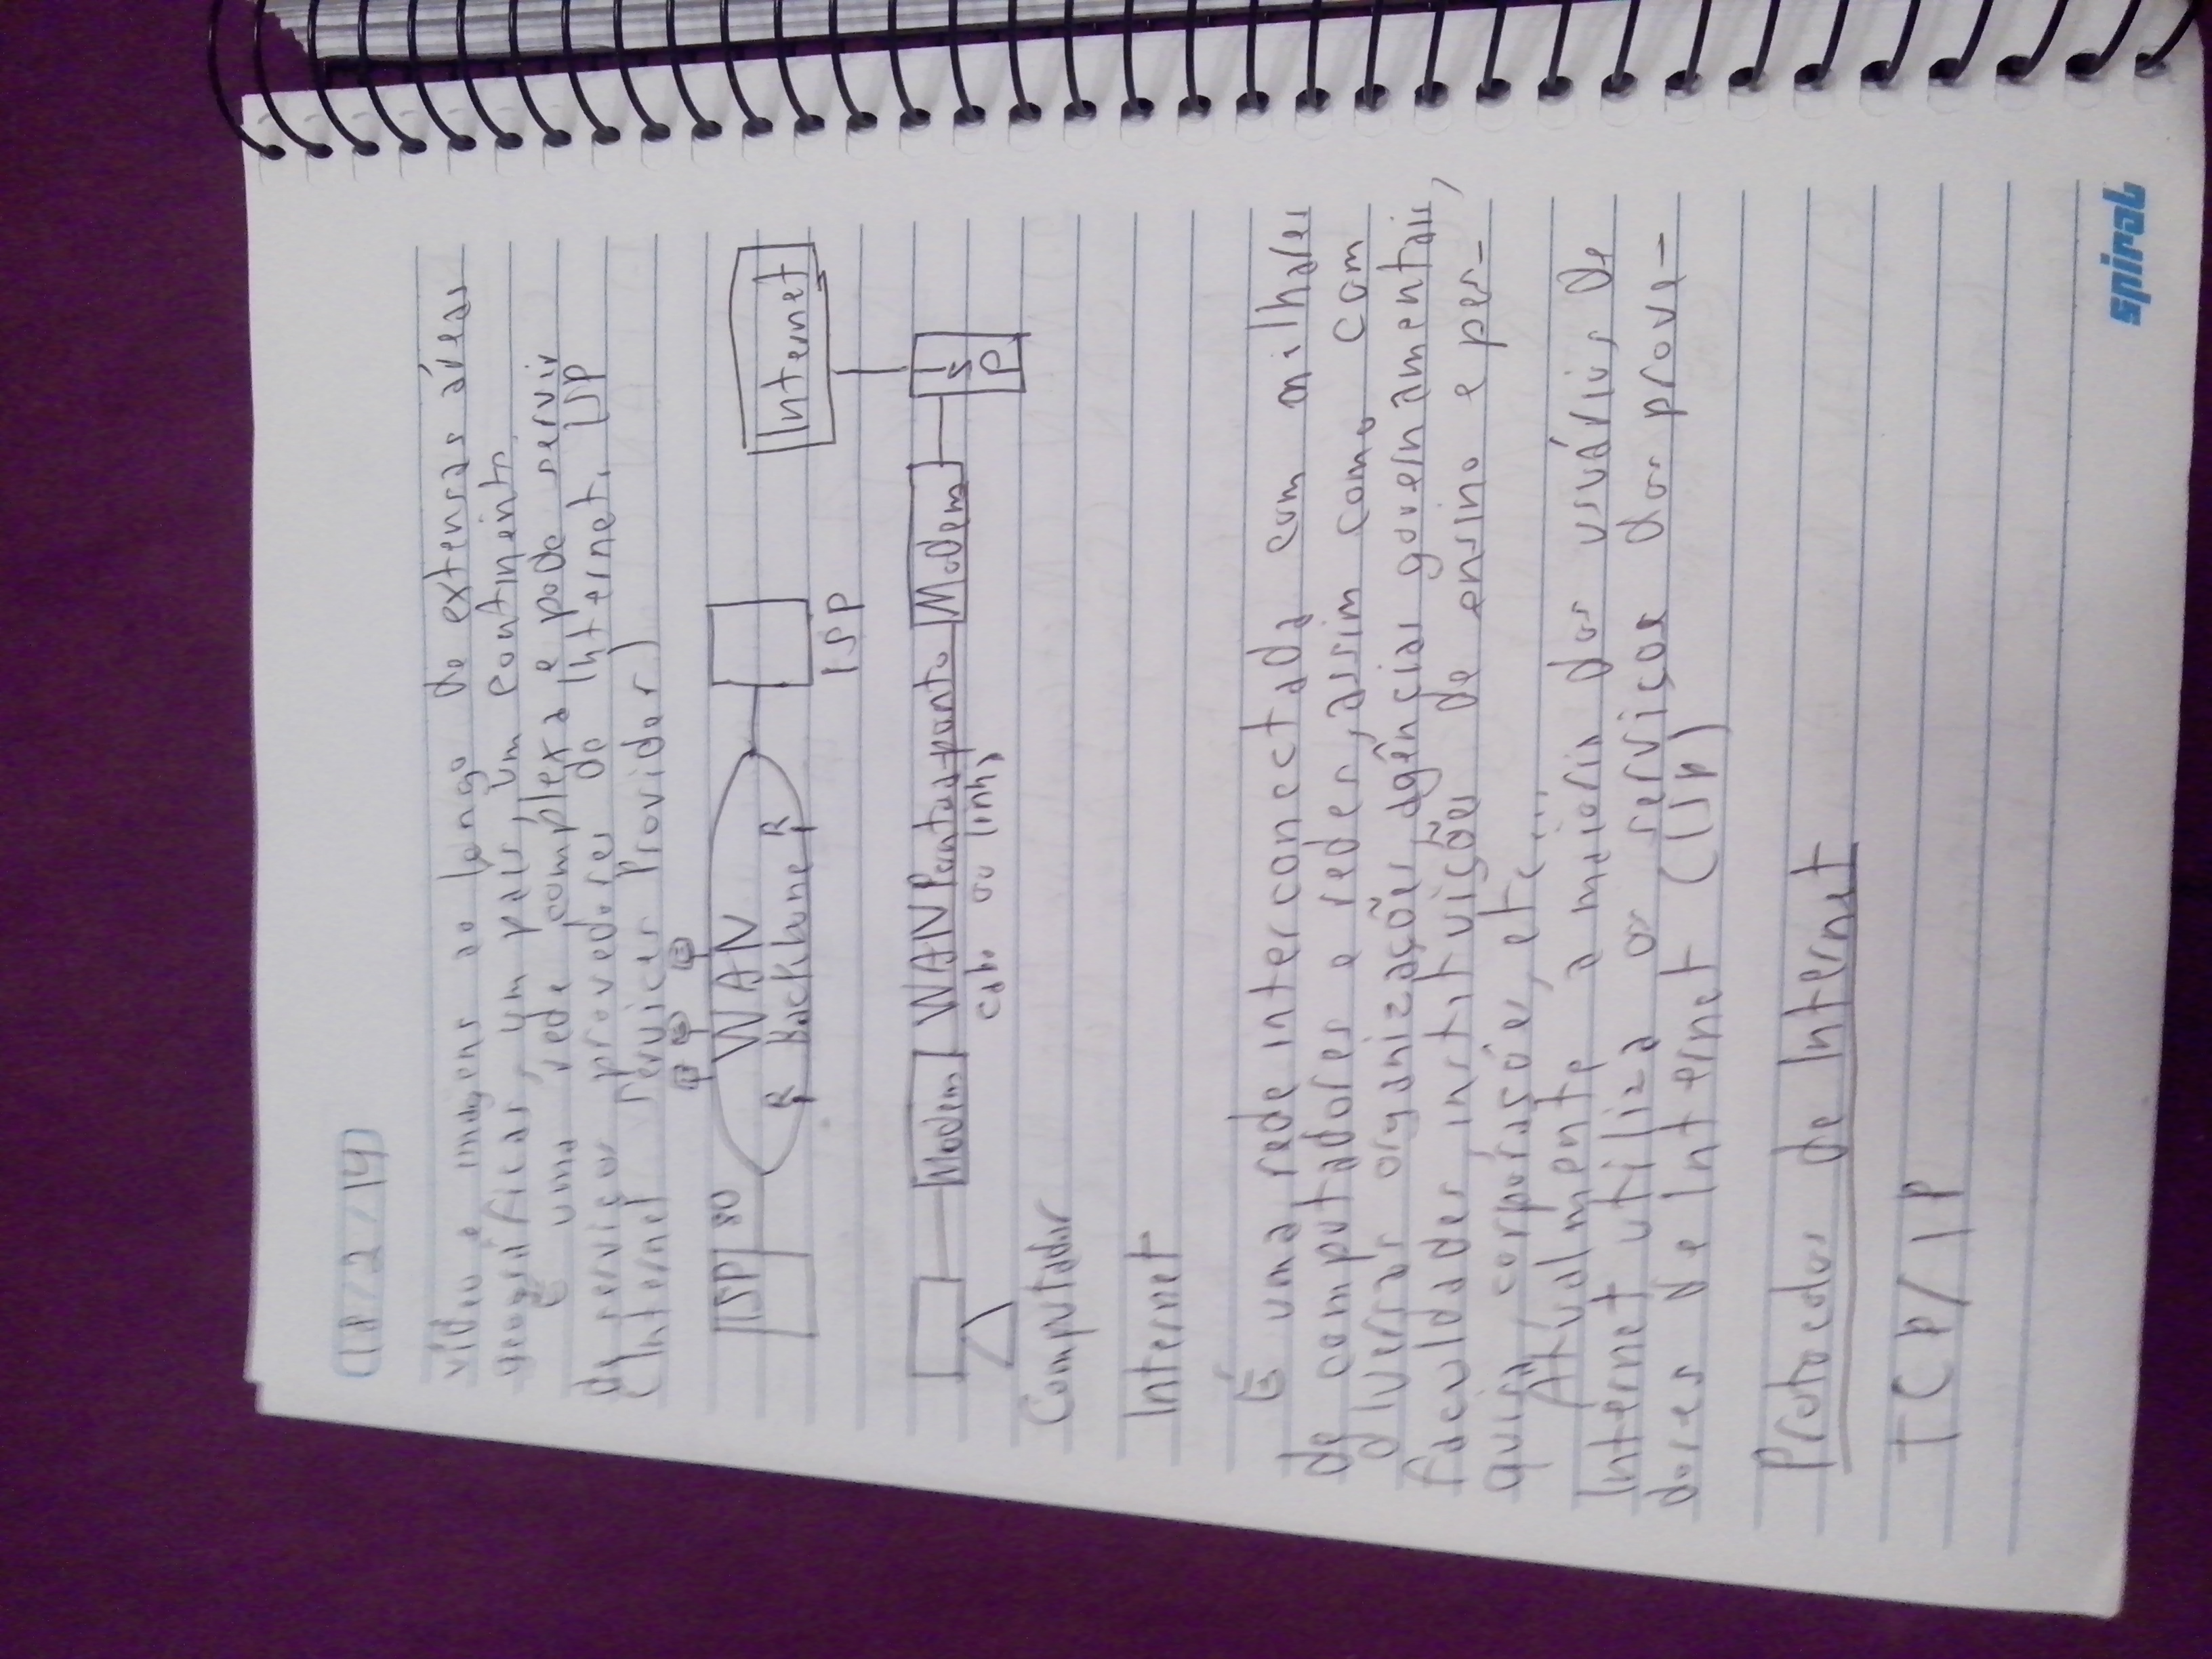 18/2/14
vídeo e imagens ao longo de extensas áreas
geográficas, um país, um continente.
É uma rede complexa e pode servir
de serviços provedores de Internet. ISP
(Internet Services Provider)
ISP 80 WAN
R Backbone R
Internet
ISP
Modem WAN Ponto a ponto Modem ISP
cabo ou linha
Computador
Internet
É uma rede interconectada com milhares
de computadores e redes, assim como com
diversas organizações, agências governamentais,
faculdades, instituições de ensino e pes-
quisa, corporações, etc...
Atualmente a maioria dos usuários de
Internet utiliza os serviços dos prove-
dores de Internet (ISP)
Protocolos de Internet
TCP/IP
spiral